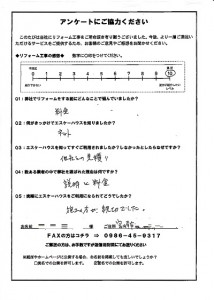 アンケートにご協力ください
このたびは当社にリフォーム工事をご用命頂き有り難うございました。今後、より一層ご満足い
ただけるサービスをご提供するため、お客様のご意見やご感想をお聞かせください。
◆リフォーム工事の感想◆ 数字に○印をつけてください。
0 1 2 3 4 5 6 7 8 9 10
Q1:弊社でリフォームをする前にどんなことで悩んでいましたか?
料金
Q2:何がきっかけでエスケーハウスを知りましたか?
ネット
Q3:エスケーハウスを知ってすぐご利用されましたか?しなかったとしたらなぜですか?
他社との見積り
Q4:数ある業者の中で弊社を選ばれた理由は何ですか?
説明と料金
Q5:実際にエスケーハウスをご利用になられてどうでしたか?
親切でした。
FAXの方はコチラ ⇒ 0986-45-9317
郵送の方は、お手数ですが返信用封筒にてお送りください